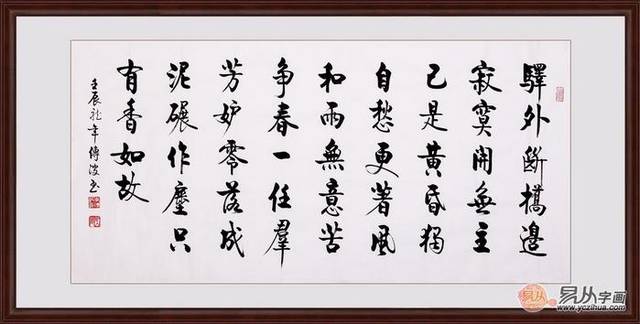 驛外斷橋邊
寂寞開無主
已是黃昏獨
自愁更著風
和雨無意苦
争春一任羣
芳妒零落成
泥碾作塵只
有香如故
壬辰龙年傅书
易从
易从字画
www.yczihua.com